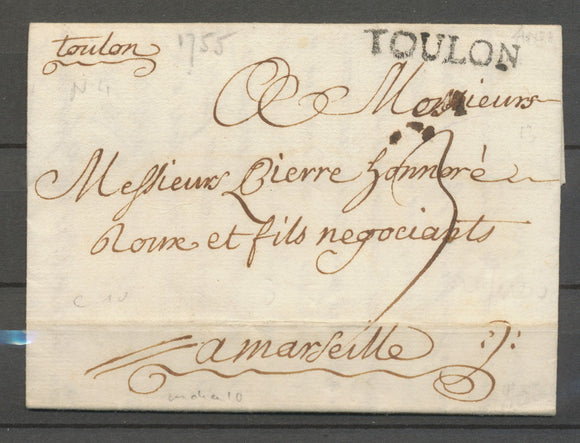 toulon
1755
TOULON
N 4
A Monsieurs
Messieurs Pierre honnoré
Roux et fils negociants
3
c 10
a marseille
indice 10